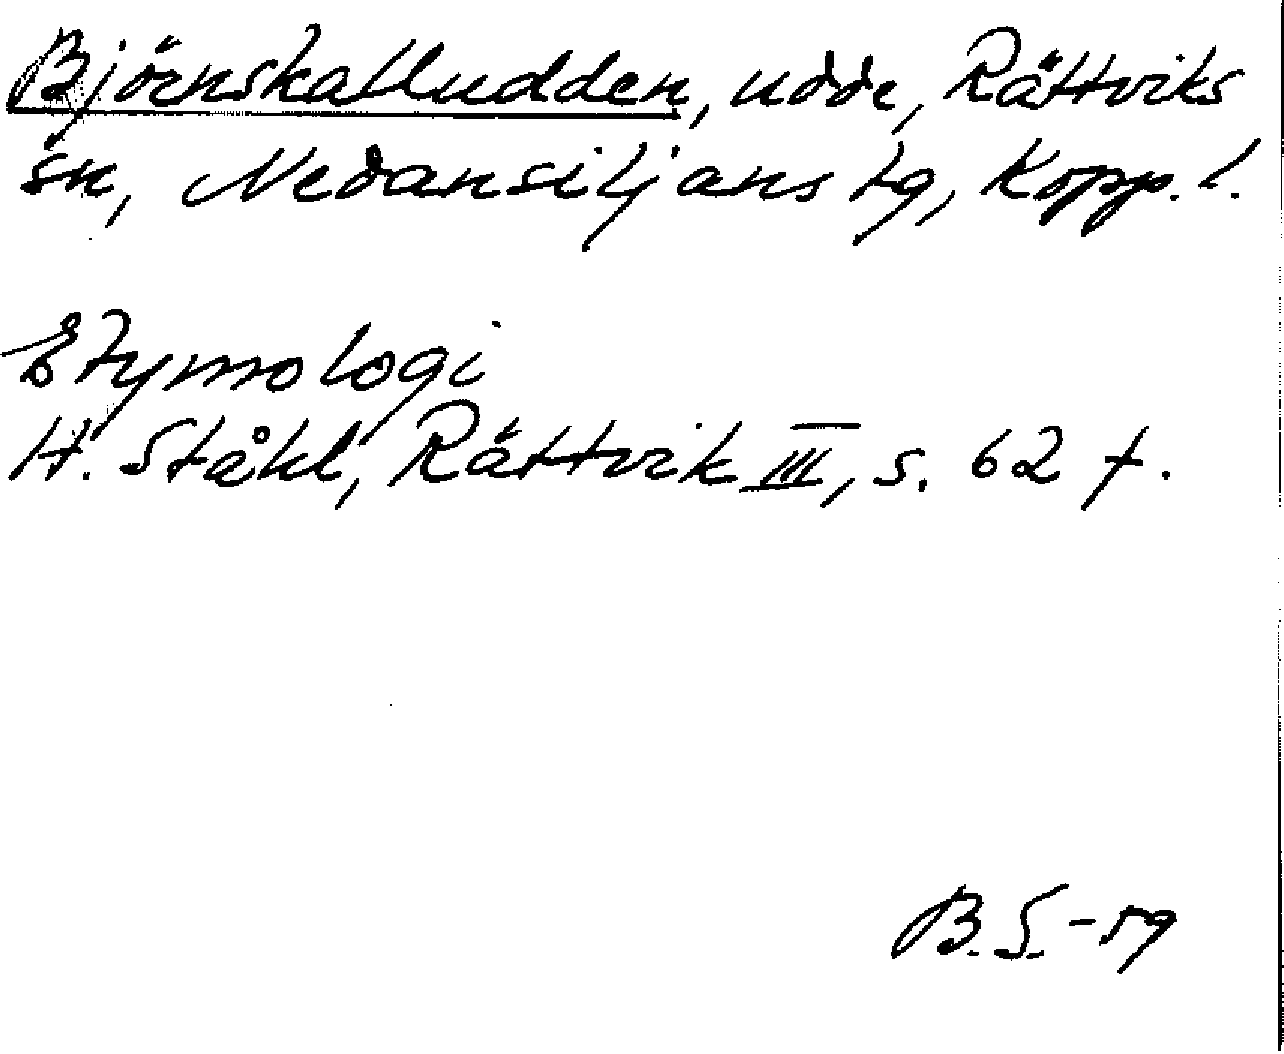 Björnskalludden, udde, Rättviks
sn, Nedansiljans tg, Kopp. l.
Etymologi
H. Ståhl, Rättvik III, s. 62 f.
B.S.-59